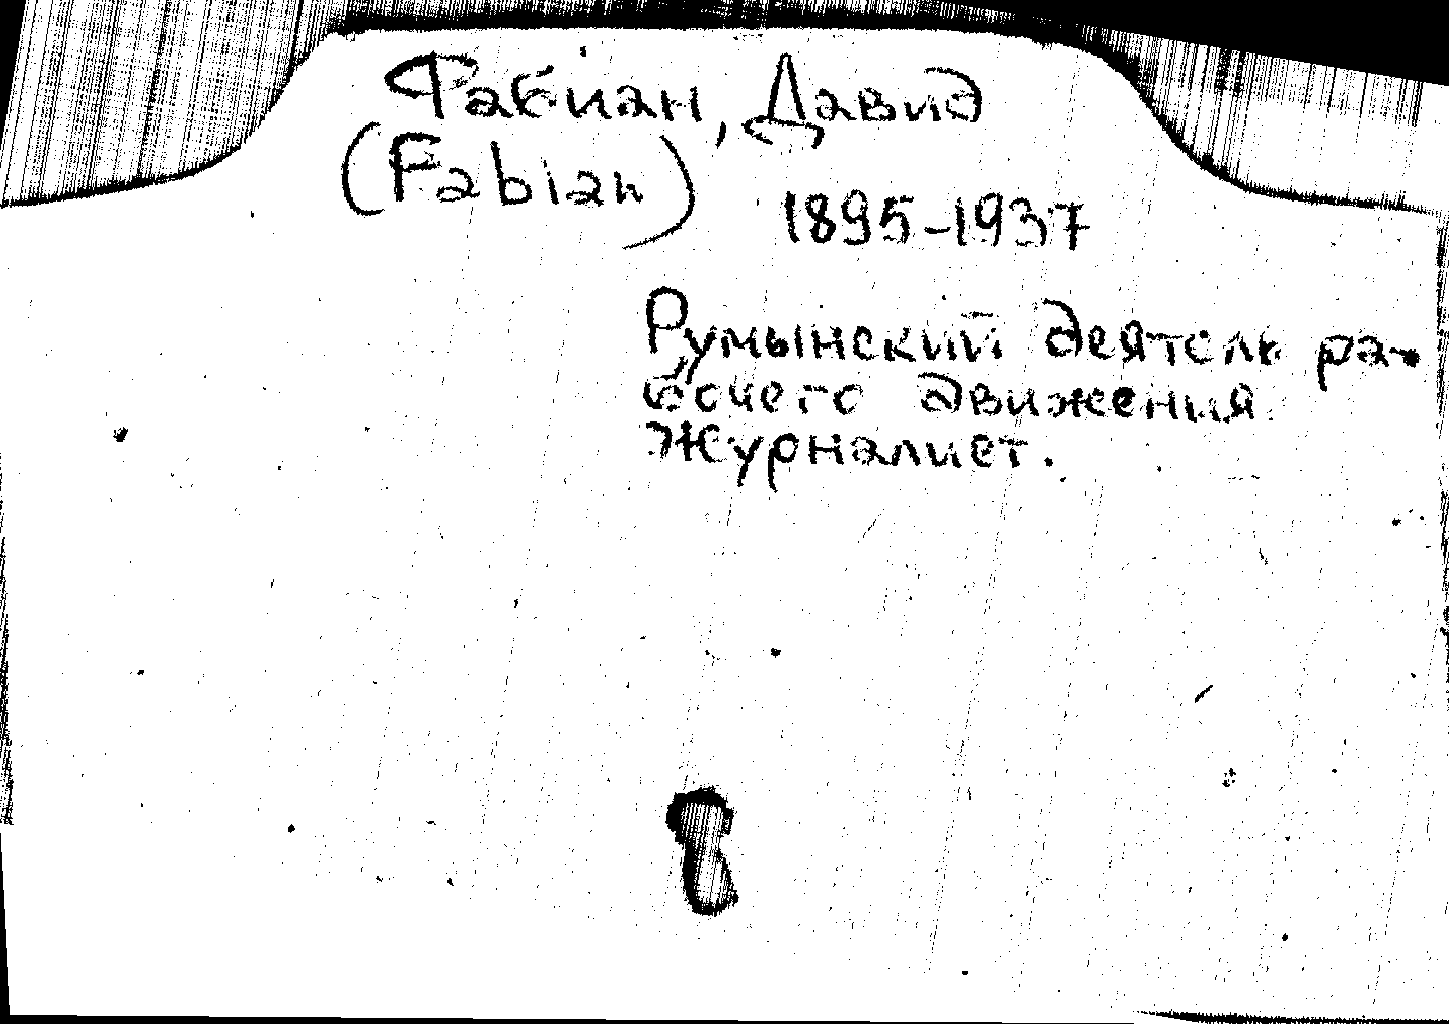 Фабиан, Давид
(Fabian)
1895-1937
Румынский деятель ра-
бочего движения
Журналист.